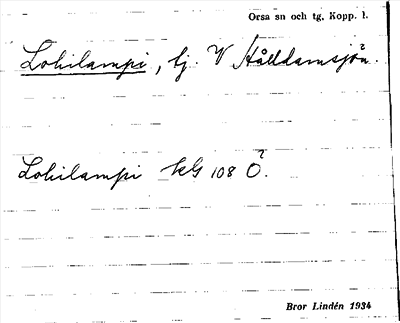 Orsa sn och tg, Kopp. l.
Lohilampi, tj. V Hålldamsjön.
Lohilampi kG 108 Ö?.
Bror Lindén 1934